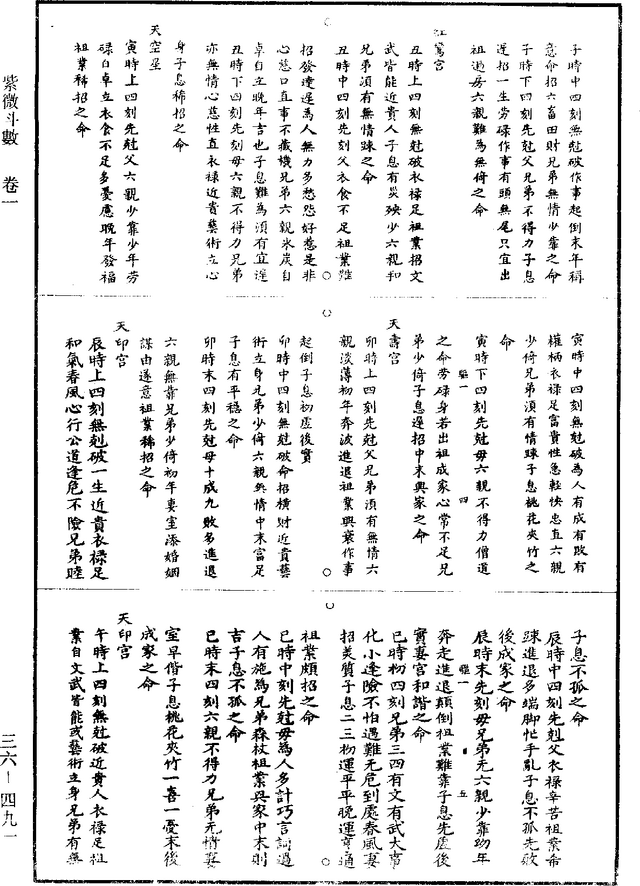 紫微斗數　卷一
三六－四九一
子時中四刻無尅破作事起倒末年稱
意命招六畜田財兄弟無情少靠之命
子時下四刻先尅父兄弟不得力子息
遲招一生勞碌作事有頭無尾只宜出
祖過房六親難為無倚之命
紅鸞宮
丑時上四刻無尅破衣祿足祖業招文
武皆能近貴人子息有災殃少六親和
兄弟須有無情踈之命
丑時中四刻先刻父衣食不足祖業難
招發達遲為人無力多愁怨好惹是非
心慈口直事不藏機兄弟六親氷炭自
卓自立晚年吉也子息難為須有宜遲
丑時下四刻先刻母六親不得力兄弟
亦無情心慈性直衣祿近貴藝術立心
身子息稀招之命
天空星
寅時上四刻先尅父六親少靠少年勞
碌自卓立衣食不足多憂慮晚年發福
祖業稀招之命
寅時中四刻無尅破為人有成有敗有
權柄衣祿足富貴性急輕快忠直六親
少倚兄弟須有情踈子息桃花夾竹之
命
寅時下四刻先尅母六親不得力僧道
之命勞碌身若出祖成家心常不足兄
弟少倚子息遲招中末興家之命
天壽宮
卯時上四刻先尅父兄弟須有無情六
親淡薄初年奔波進退祖業興衰作事
起倒子息初虛後實
卯時中四刻無尅破命招橫財近貴藝
術立身兄弟少倚六親無情中末富足
子息有平穩之命
卯時末四刻先尅母十成九敗多進退
六親無靠兄弟少倚初年妻室添婚姻
謀由遂意祖業稀招之命
天印宮
辰時上四刻無尅破一生近貴衣祿足
和氣春風心行公道逢危不險兄弟睦
子息不孤之命
辰時中四刻先尅父衣祿辛苦祖業希
踈進退多端脚忙手亂子息不孤先敗
後成家之命
辰時末先刻母兄弟无六親少靠幼年
奔走進退顛倒祖業難靠子息先虛後
實妻宮和諧之命
巳時初四刻兄弟三四有文有武大事
化小逢險不怕遇難无危到處春風妻
招美質子息二三初運平平晚運亨通
祖業頗招之命
巳時中四刻先尅母為人多計巧言詞過
人有施為兄弟森杖祖業興家中末則
吉子息不孤之命
巳時末四刻六親不得力兄弟无情妻
室早偕子息桃花夾竹一喜一憂末後
成家之命
天印宮
午時上四刻無尅破近貴人衣祿足祖
業自文武皆能或藝術立身兄弟有無